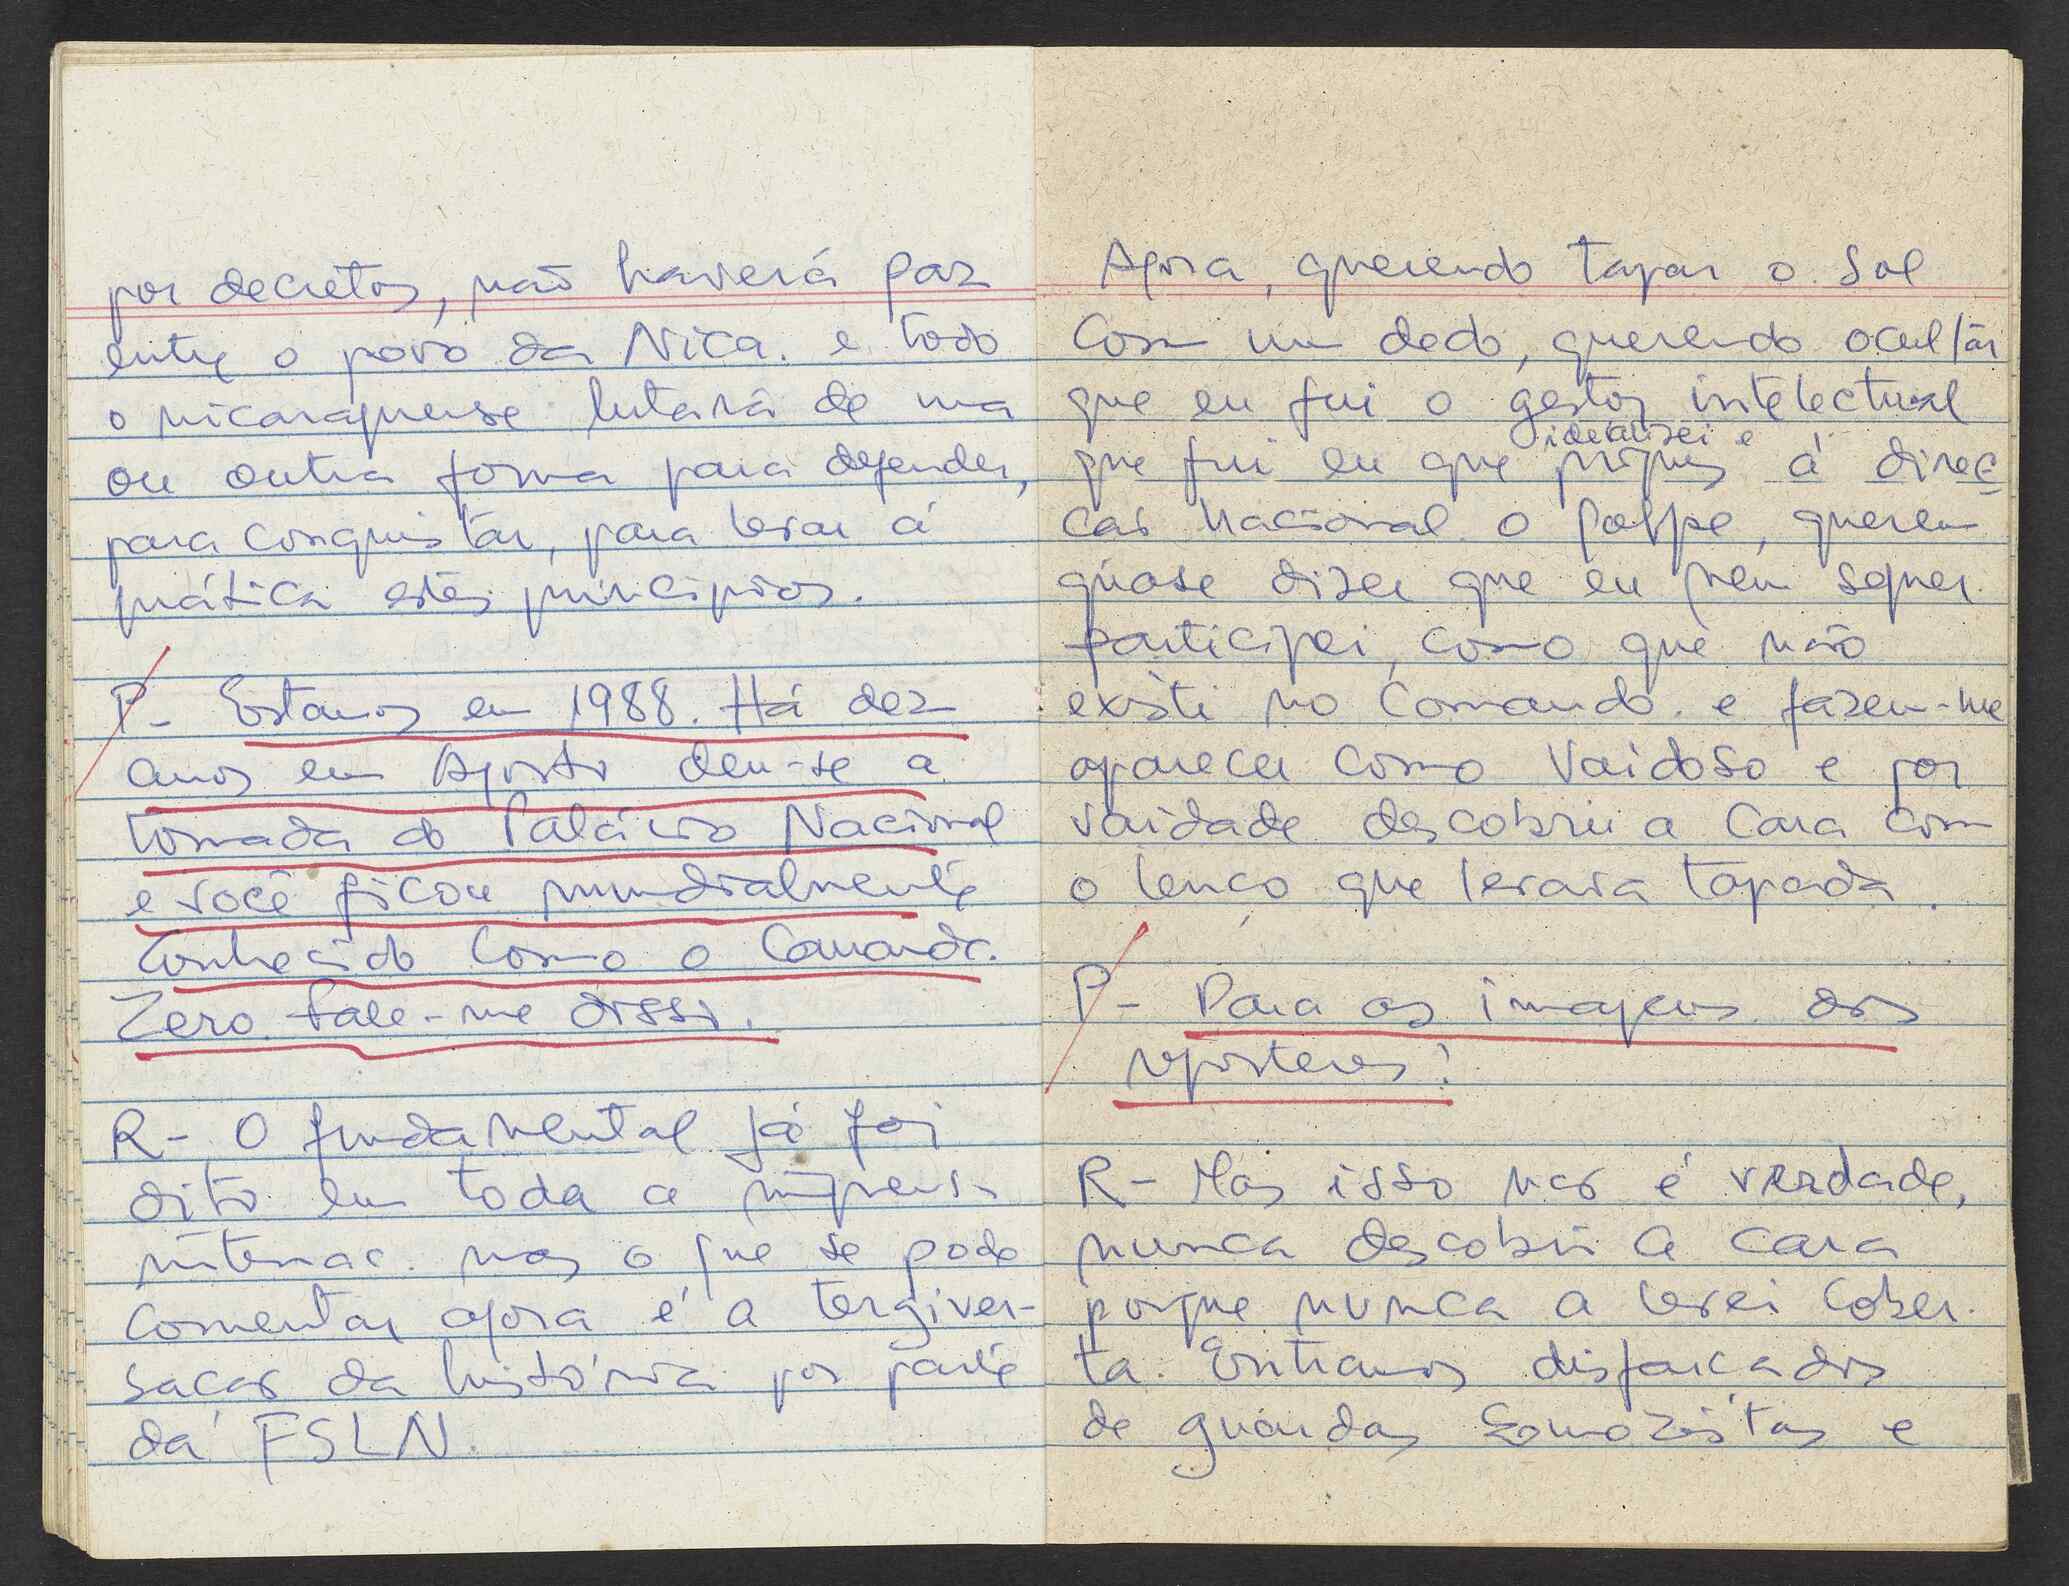 por decretos, não haverá paz
entre o povo da Nica. e todo
o nicaraguense lutará de uma
ou outra forma para defender,
para conquistar, para levar á
prática estes princípios.
P- Estamos em 1988. Há dez
anos em Agosto deu-se a
tomada do Palácio Nacional
e você ficou mundialmente
conhecido como o Comand.
Zero. Fale-me disso.
R- O fundamental já foi
dito em toda a imprensa
internac. mas o que se pode
comentar agora é a tergiver-
saçao da história por parte
da FSLN.
Agora, querendo tapar o Sol
com um dedo, querendo ocultar
que eu fui o gestor intelectual
que fui eu que idealizei e propus á direc
cao Nacional o golpe, querem
quase dizer que eu nem sequer
participei, como que não
existi no Comando. e fazem-me
aparecer como vaidoso e por
vaidade descobri a cara com
o lenço que levava tapada.
P- Para as imagens dos
reporteres?
R- Mas isso nao é verdade,
nunca descobri a cara
porque nunca a levei cober.
ta. Entramos disfarcados
de guardas Somozistas e